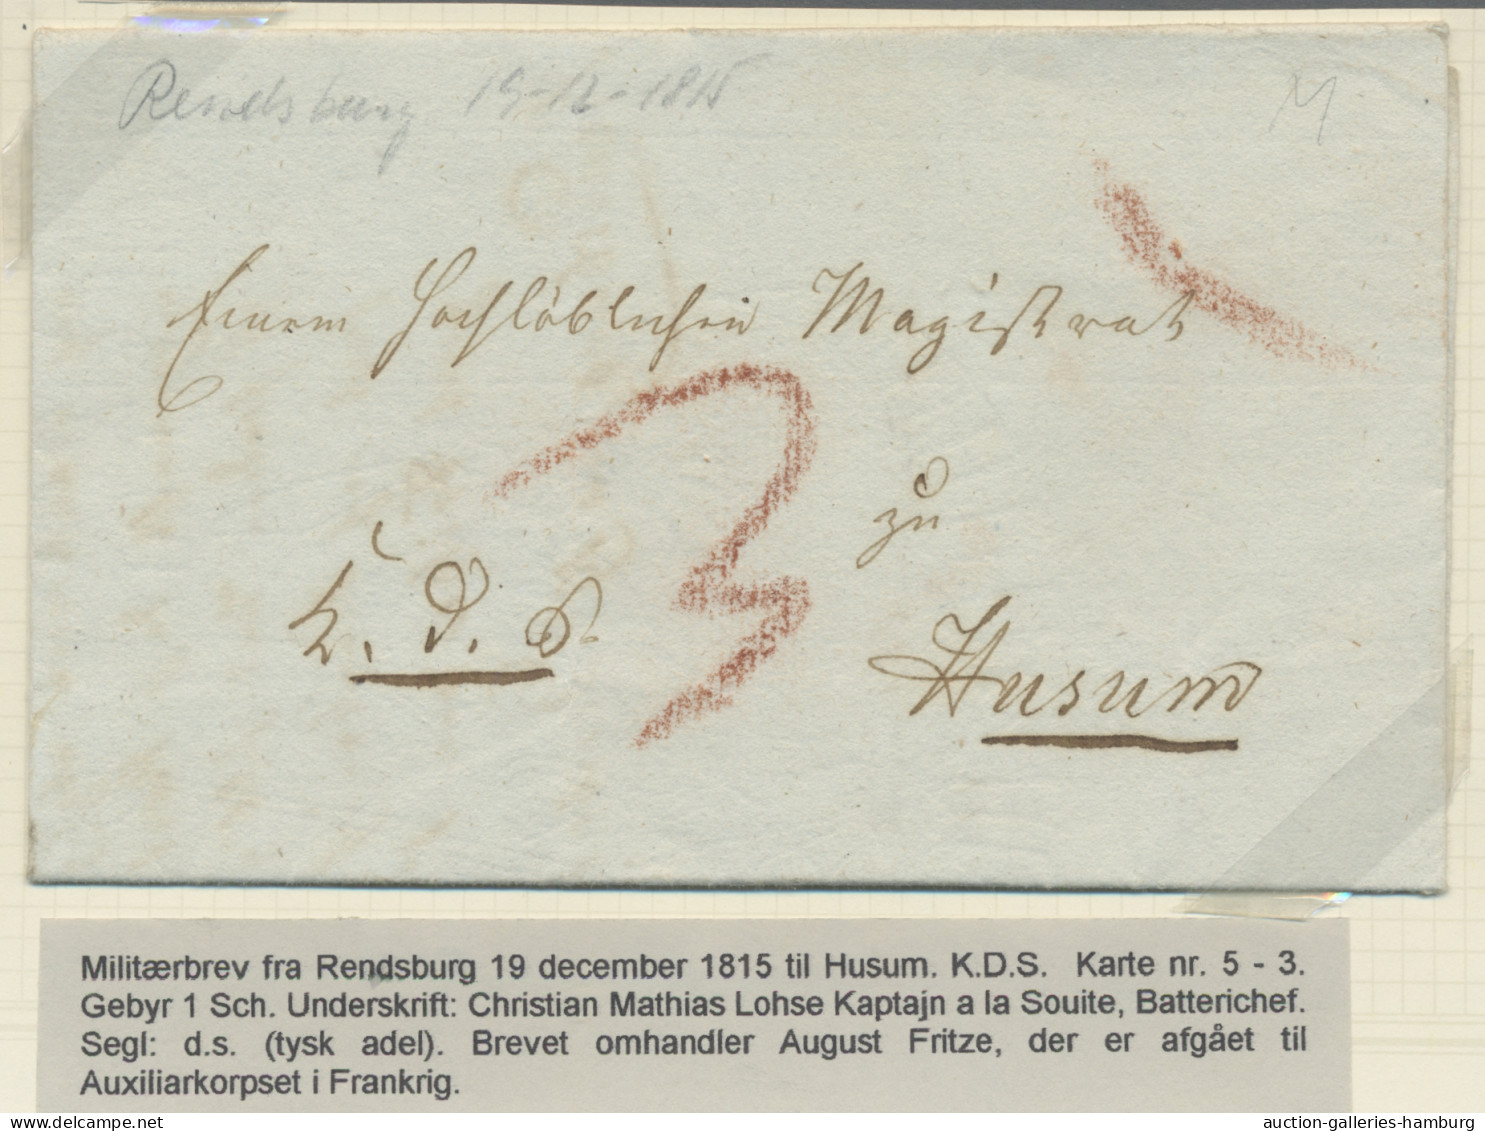 Rendsburg 19-12-1815
M
Einem Hochlöblichen Magistrat
3
zu
K. D. S.
Husum
Militærbrev fra Rendsburg 19 december 1815 til Husum. K.D.S. Karte nr. 5 - 3.
Gebyr 1 Sch. Underskrift: Christian Mathias Lohse Kaptajn a la Souite, Batterichef.
Segl: d.s. (tysk adel). Brevet omhandler August Fritze, der er afgået til
Auxiliarkorpset i Frankrig.
auction-galleries-hamburg